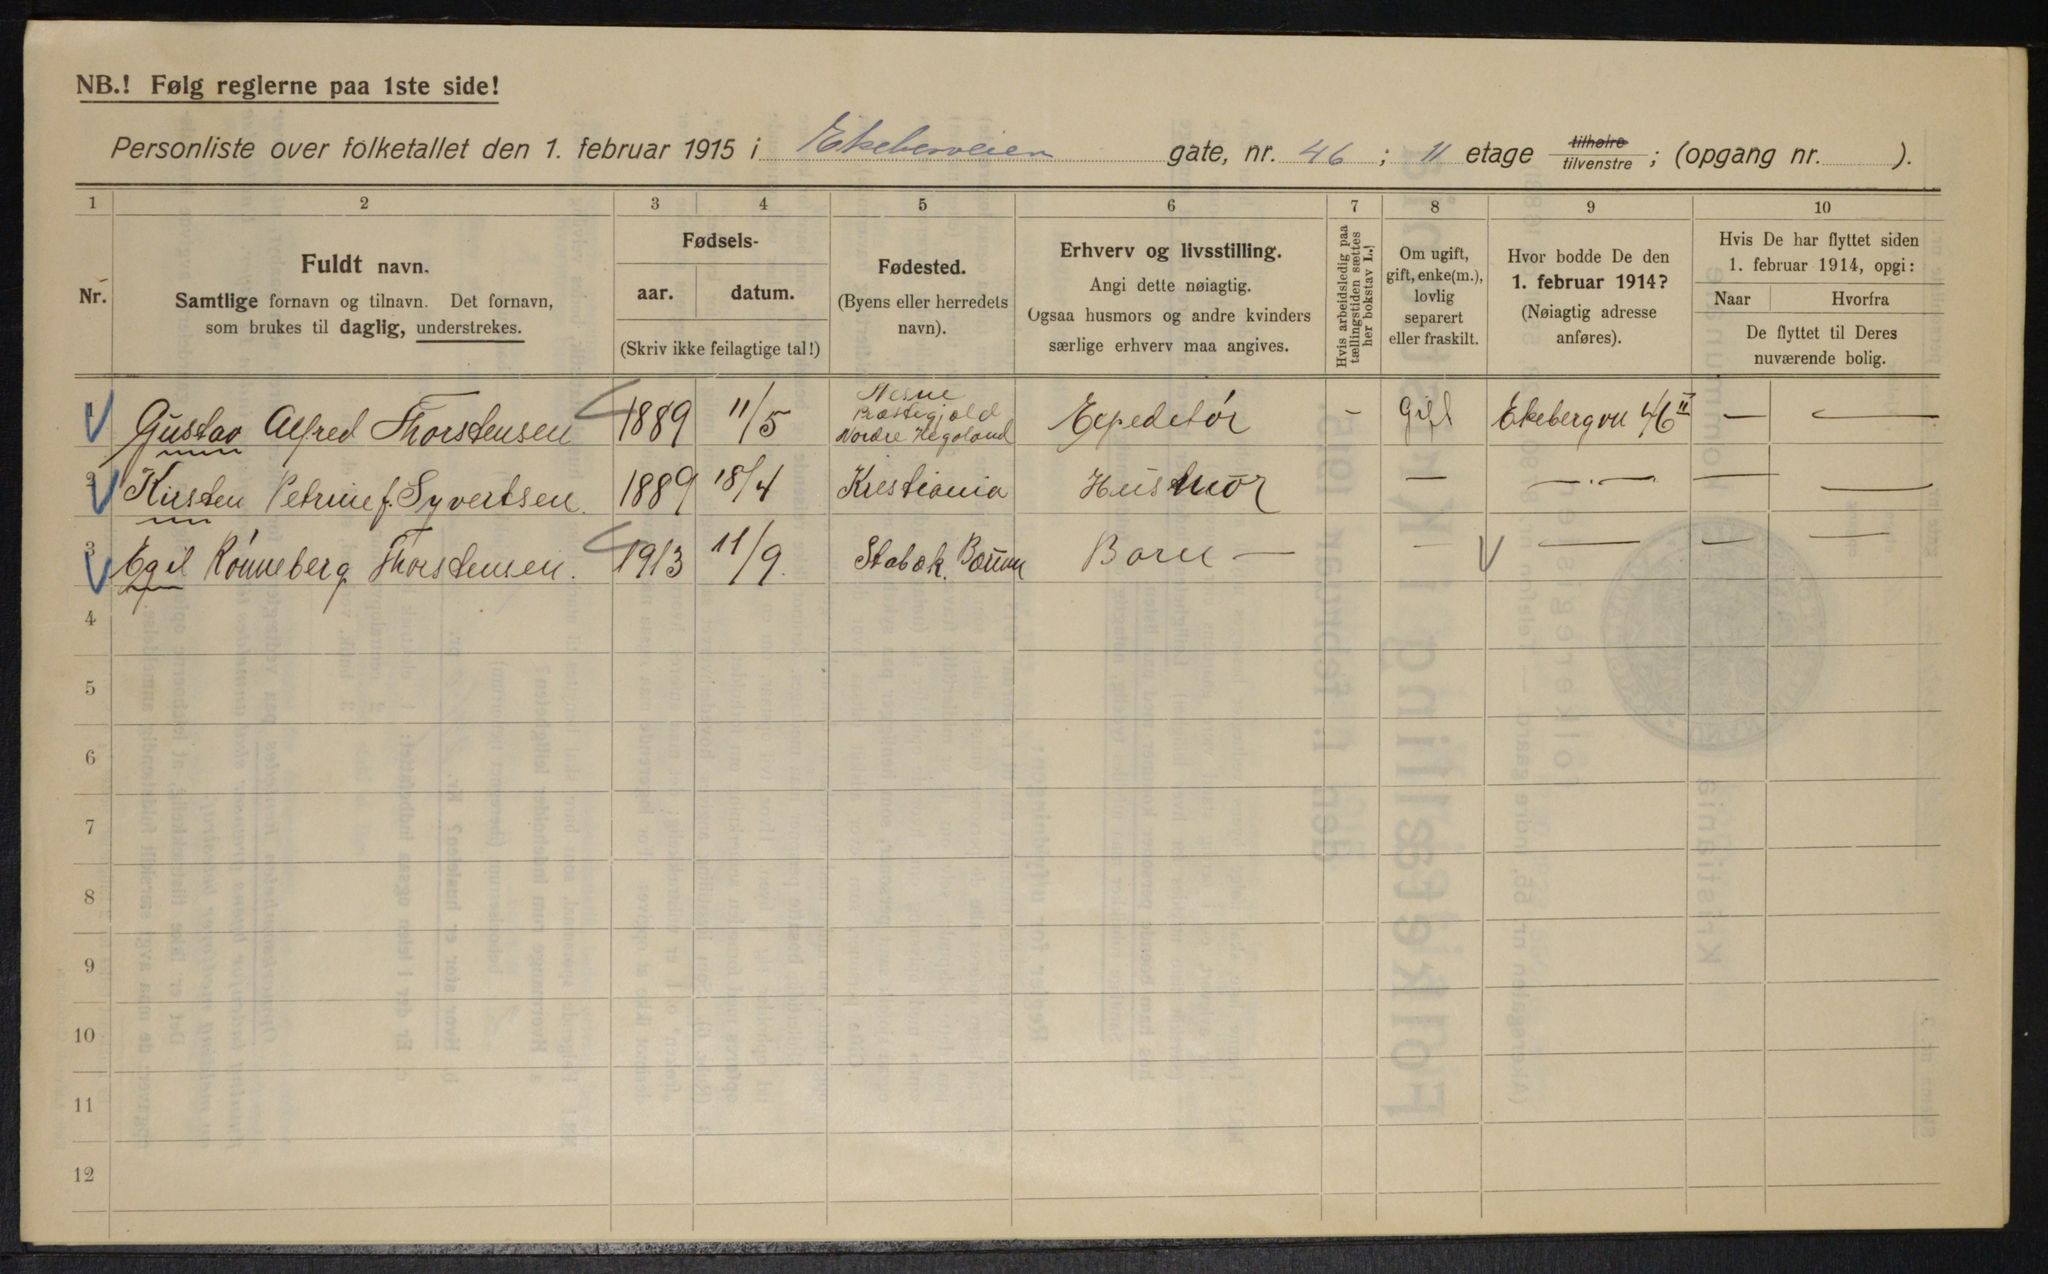 NB.! Følg reglerne paa 1ste side!
Personliste over folketallet den 1. februar 1915 i Ekeberveien gate, nr. 46 ; 11 etage tilhøire tilvenstre ; (opgang nr. ).
1 2 3 4 5 6 7 8 9 10
Nr.
Fuldt navn.
Samtlige fornavn og tilnavn. Det fornavn,
som brukes til daglig, understrekes.
Fødsels-
aar. datum.
(Skriv ikke feilagtige tal!)
Fødested.
(Byens eller herredets
navn).
Erhverv og livsstilling.
Angi dette nøiagtig.
Ogsaa husmors og andre kvinders
særlige erhverv maa angives.
Hvis arbeidsledig paa
tællingstiden sættes
her bokstav L.!
Om ugift,
gift, enke(m.),
lovlig
separert
eller fraskilt.
Hvor bodde De den
1. februar 1914?
(Nøiagtig adresse
anføres).
Hvis De har flyttet siden
1. februar 1914, opgi:
Naar Hvorfra
De flyttet til Deres
nuværende bolig.
1 Gustav Alfred Thorstensen 1889 11/5 Nesne Præstegjald Nordre Hegeland Expeditør - Gift Ekebergvn 46 II — —
2 Kirsten Petrine f. Syvertsen. 1889 18/4 Kristiania Husmor — —·— — —
3 Egil Rønneberg Thorstensen. 1913 11/9. Stabæk. Bærum Barn — — — — —
4
5
6
7
8
9
10
11
12